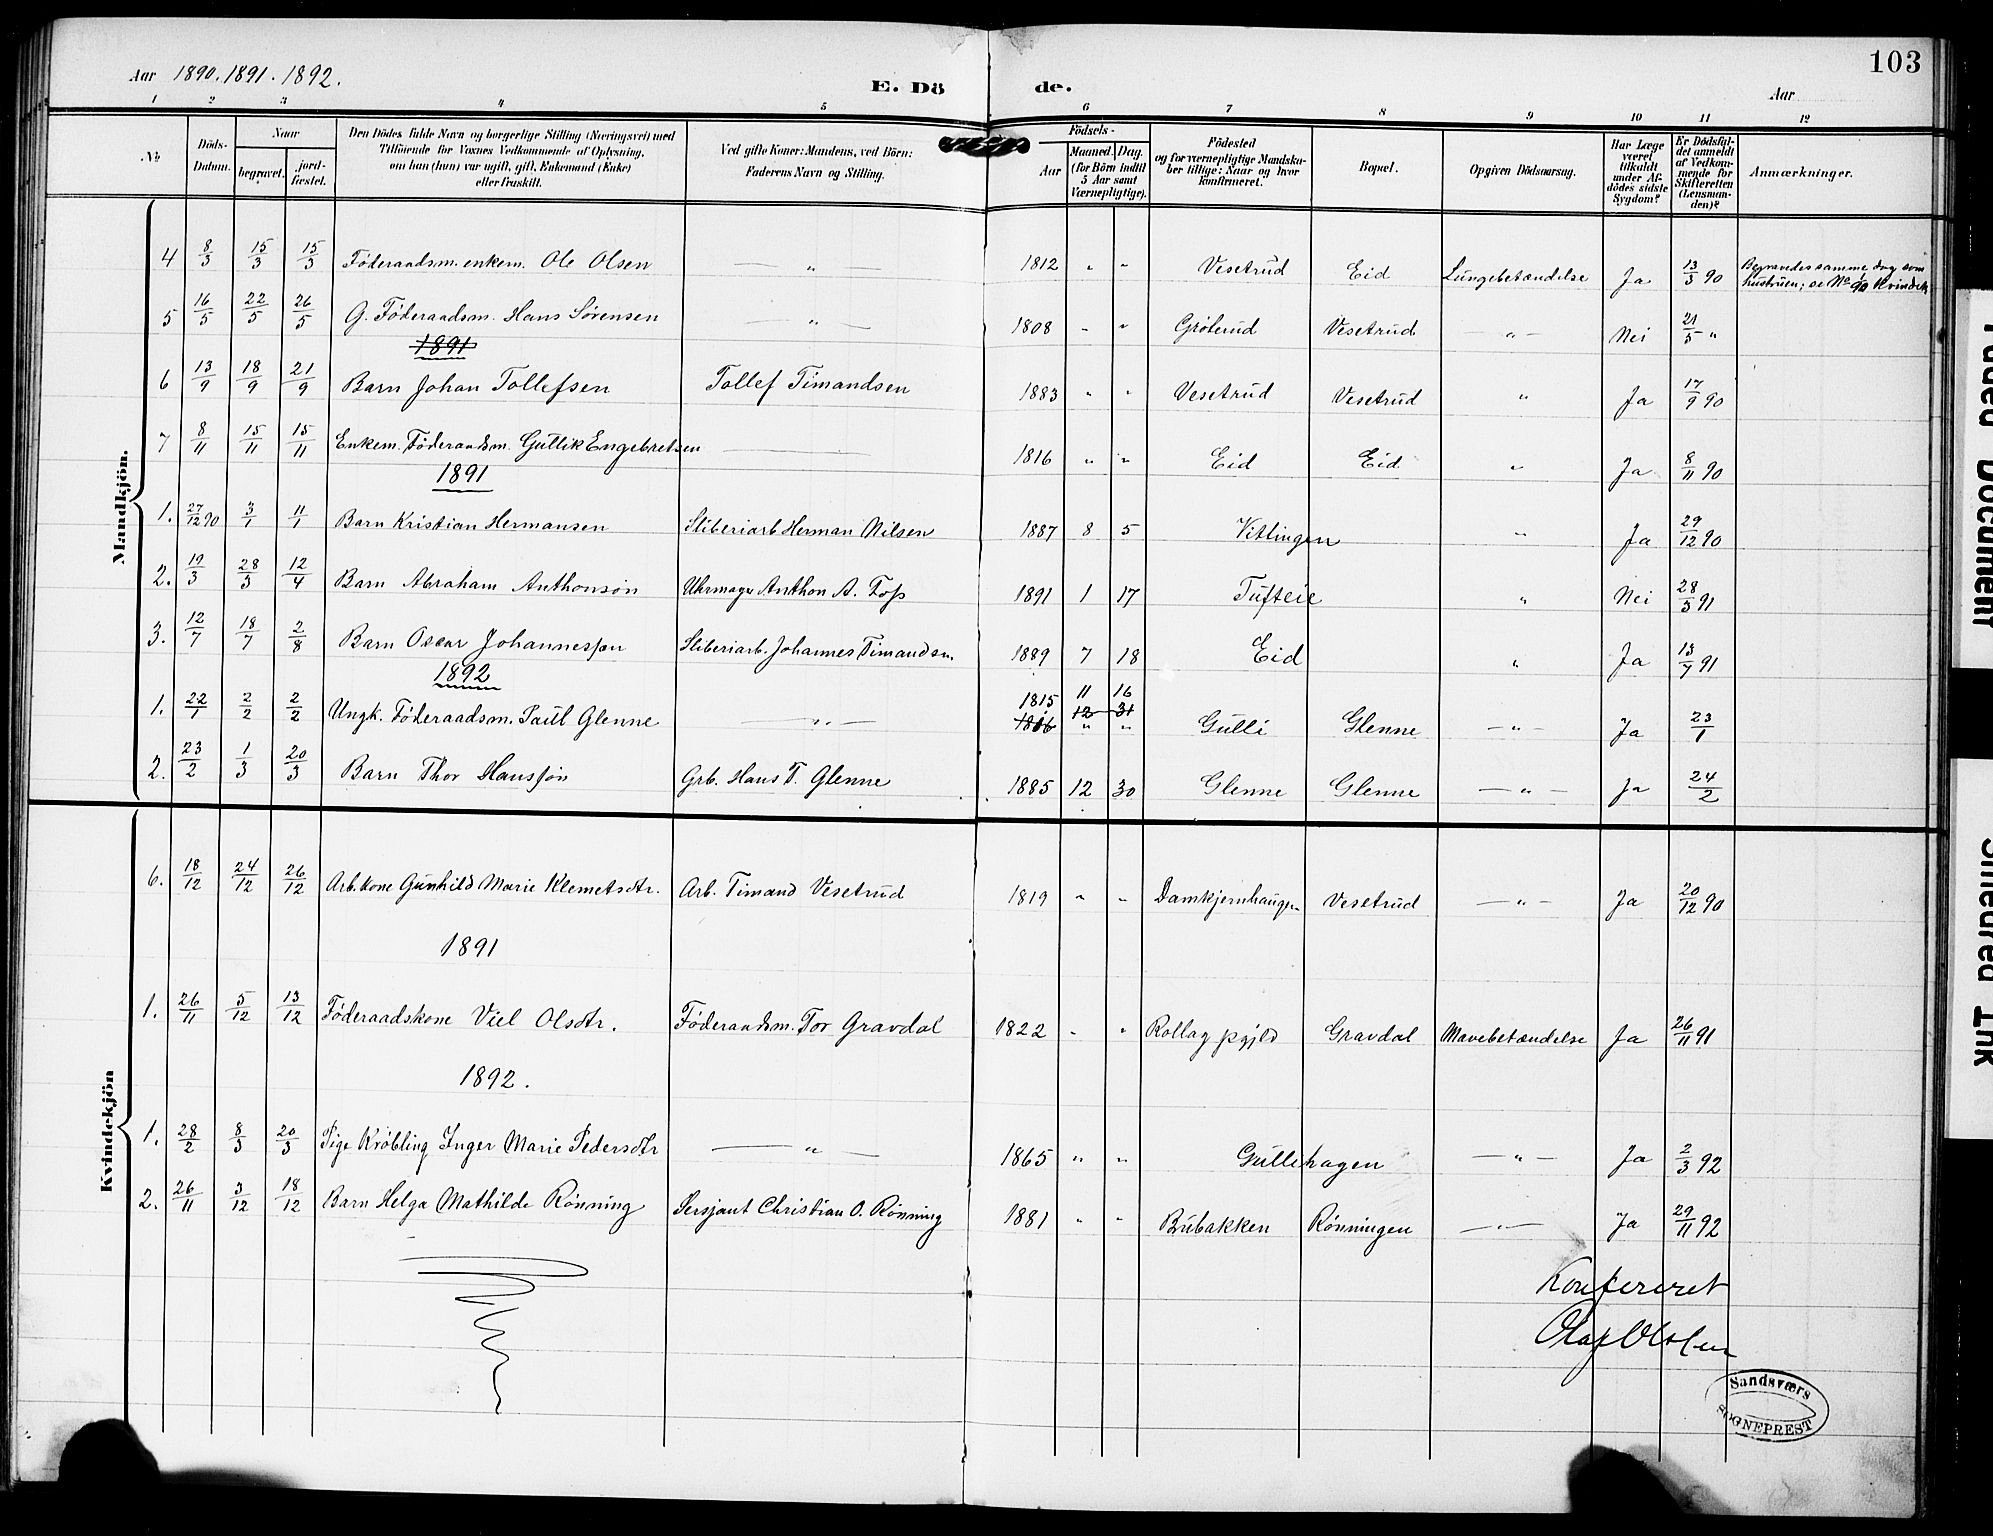 103
Aar 1890. 1891. 1892.
E. Dö de.
Aar
1 2 3 4 5 6 7 8 9 10 11 12
No
Döds-Datum.
Naar
begravet.
jordfæstet.
Den Dödes fulde Navn og borgerlige Stilling (Næringsvei) med
Tilföiende for Voxnes Vedkommende af Oplysning,
om han (hun) var ugift, gift, Enkemand (Enke)
eller fraskilt.
Ved gifte Koner: Mandens, ved Börn:
Faderens Navn og Stilling.
Födsels-
Aar
Maaned. Dag.
(for Börn indtil
5 Aar samt
Værnepligtige).
Födested
og for værnepligtige Mandskaber tillige: Naar og hvor
konfirmeret.
Bopæl.
Opgiven Dödsaarsag.
Har Læge
været
tilkaldt
under Afdödes sidste
Sygdom?
Er Dödsfaldet anmeldt
af Vedkommende for
Skifteretten
(Lensmanden)?
Anmærkninger.
Mandkjön.
4 8/3 15/3 15/3 Föderaadsm. enkem. Ole Olsen — " — 1812 " " Vesetrud Eid Lungebetændelse Ja 13/3 90 Begravedes samme dag som
hustruen; se No Kvindek.
5 16/5 22/5 26/5 G. Föderaadsm. Hans Sörensen — " — 1808 " " Gröterud Vesetrud — " — Nei 21/5 "
1891
6 13/9 18/9 21/9 Barn Johan Tollefsen Tollef Timandsen 1883 " " Vesetrud Vesetrud " Ja 17/9 90
7 8/11 15/11 15/11 Enkem. Föderaadsm. Gullik Engebretsen — 1816 " " Eid Eid " Ja 8/11 90
1891
1. 27/12 90 3/1 11/1 Barn Kristian Hermansen Sliberiarb Herman Nilsen 1887 8 5 Vittingen " Ja 29/12 90
2. 19/3 28/3 12/4 Barn Abraham Anthonsön Uhrmager Anthon A. Foss 1891 1 17 Tufteie " Nei 28/3 91
3. 12/7 18/7 2/8 Barn Oscar Johannessen Sliberiarb. Johannes Timandsn. 1889 7 18 Eid " Ja 13/7 91
1892
1. 22/1 2/2 2/2 Ungk. Föderaadsm. Paul Glenne — " — 1815 11 16
1816 12 31 " " Gulli Glenne — " — Ja 23/1
2. 23/2 1/3 20/3 Barn Thor Hanssön Grb. Hans T. Glenne 1885 12 30 Glenne Glenne — " — Ja 24/2
Kvindekjön
6. 18/12 24/12 26/12 Arb. kone Gunhild Marie Klemetsdtr. Arb. Timand Vesetrud 1819 " " Damkjernhaugen Vesetrud — " — Ja 20/12 90
1891
1. 26/11 5/12 13/12 Föderaadskone Viel Olsdtr. Föderaadsm. Tor Gravdal 1822 " " Rollag pgjld Gravdal Mavebetændelse Ja 26/11 91
1892.
1. 28/2 8/3 20/3 Pige Kröbling Inger Marie Pedersdtr — " — 1865 " " Gullehagen — " — Ja 2/3 92
2. 26/11 3/12 18/12 Barn Helga Mathilde Rönning Sersjant Christian O. Rönning 1881 " " Bubakken Rönningen — " — Ja 29/11 92
Konfereret
Olaf Olsen
Sandsværs
SOGNEPREST
Faded Document
Smeared Ink